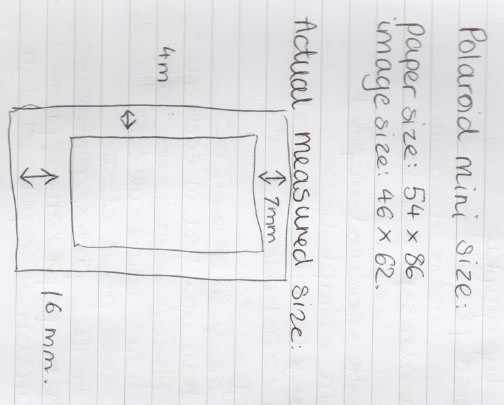 Polaroid mini size:
paper size: 54 x 86
image size: 46 x 62.
Actual measured size:
7mm
4m
16 mm.